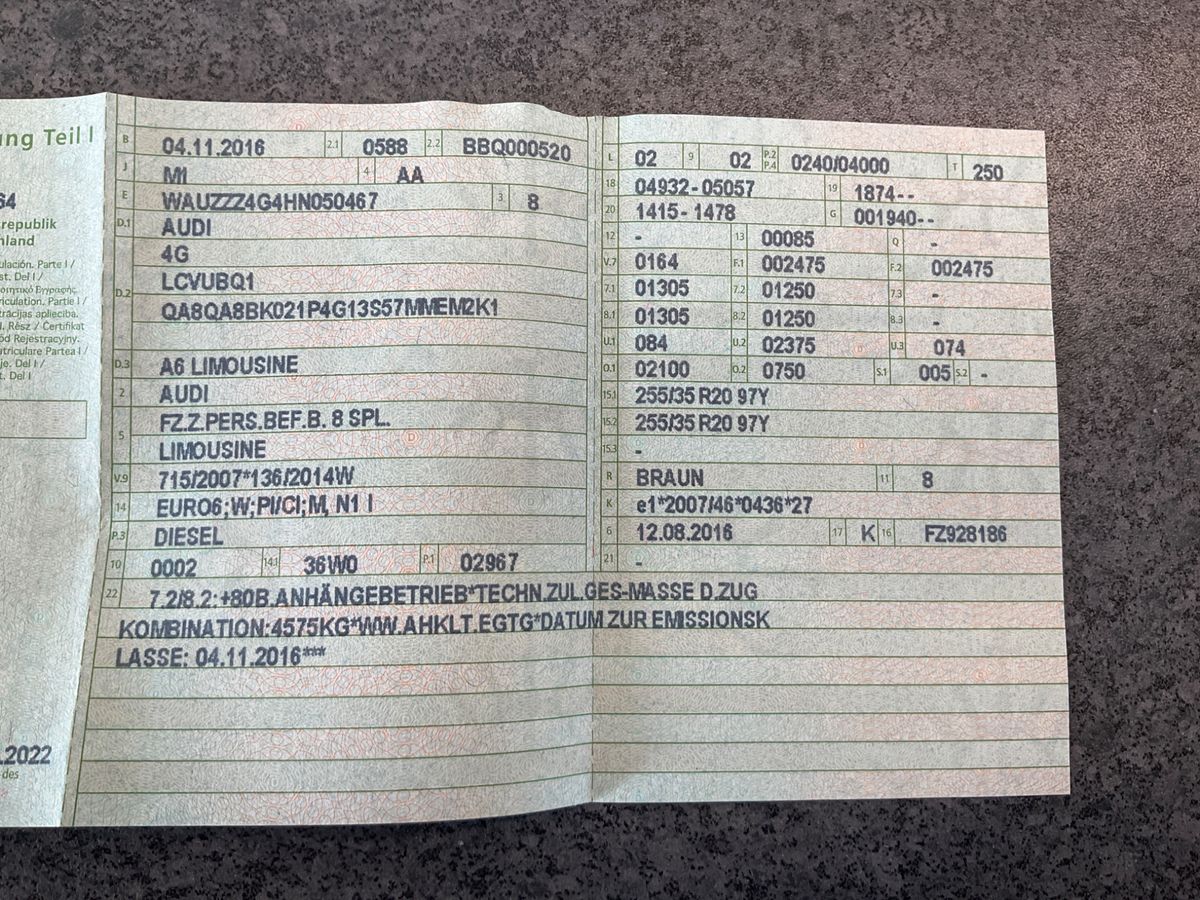 ung Teil I
64
republik
nland
ulación. Parte I /
st. Del I /
riculation. Partie I /
trācijas apliecība.
I. Rész / Certifikat
ód Rejestracyjny.
atriculare Partea I /
je. Del I /
t. Del I
.2022
des
B 04.11.2016 2.1 0588 2.2 BBQ000520
J M1 4 AA
E WAUZZZ4G4HN050467 3 8
D.1 AUDI
4G
D.2 LCVUBQ1
QA8QA8BK021P4G13S57MMEM2K1
D.3 A6 LIMOUSINE
2 AUDI
5 FZ.Z.PERS.BEF.B. 8 SPL.
LIMOUSINE
V.9 715/2007*136/2014W
14 EURO6;W;PI/CI;M, N1 I
P.3 DIESEL
10 0002 14.1 36W0 P.1 02967
L 02 9 02 P.2 P.4 0240/04000 T 250
18 04932-05057 19 1874--
20 1415-1478 G 001940--
12 - 13 00085 Q -
V.7 0164 F.1 002475 F.2 002475
7.1 01305 7.2 01250 7.3 -
8.1 01305 8.2 01250 8.3 -
U.1 084 U.2 02375 U.3 074
O.1 02100 O.2 0750 S.1 005 S.2 -
15.1 255/35 R20 97Y
15.2 255/35 R20 97Y
15.3 -
R BRAUN 11 8
K e1*2007/46*0436*27
6 12.08.2016 17 K 16 FZ928186
21 -
22 7.2/8.2:+80B.ANHÄNGEBETRIEB*TECHN.ZUL.GES-MASSE D.ZUG
KOMBINATION:4575KG*WW.AHKLT.EGTG*DATUM ZUR EMISSIONSK
LASSE: 04.11.2016***